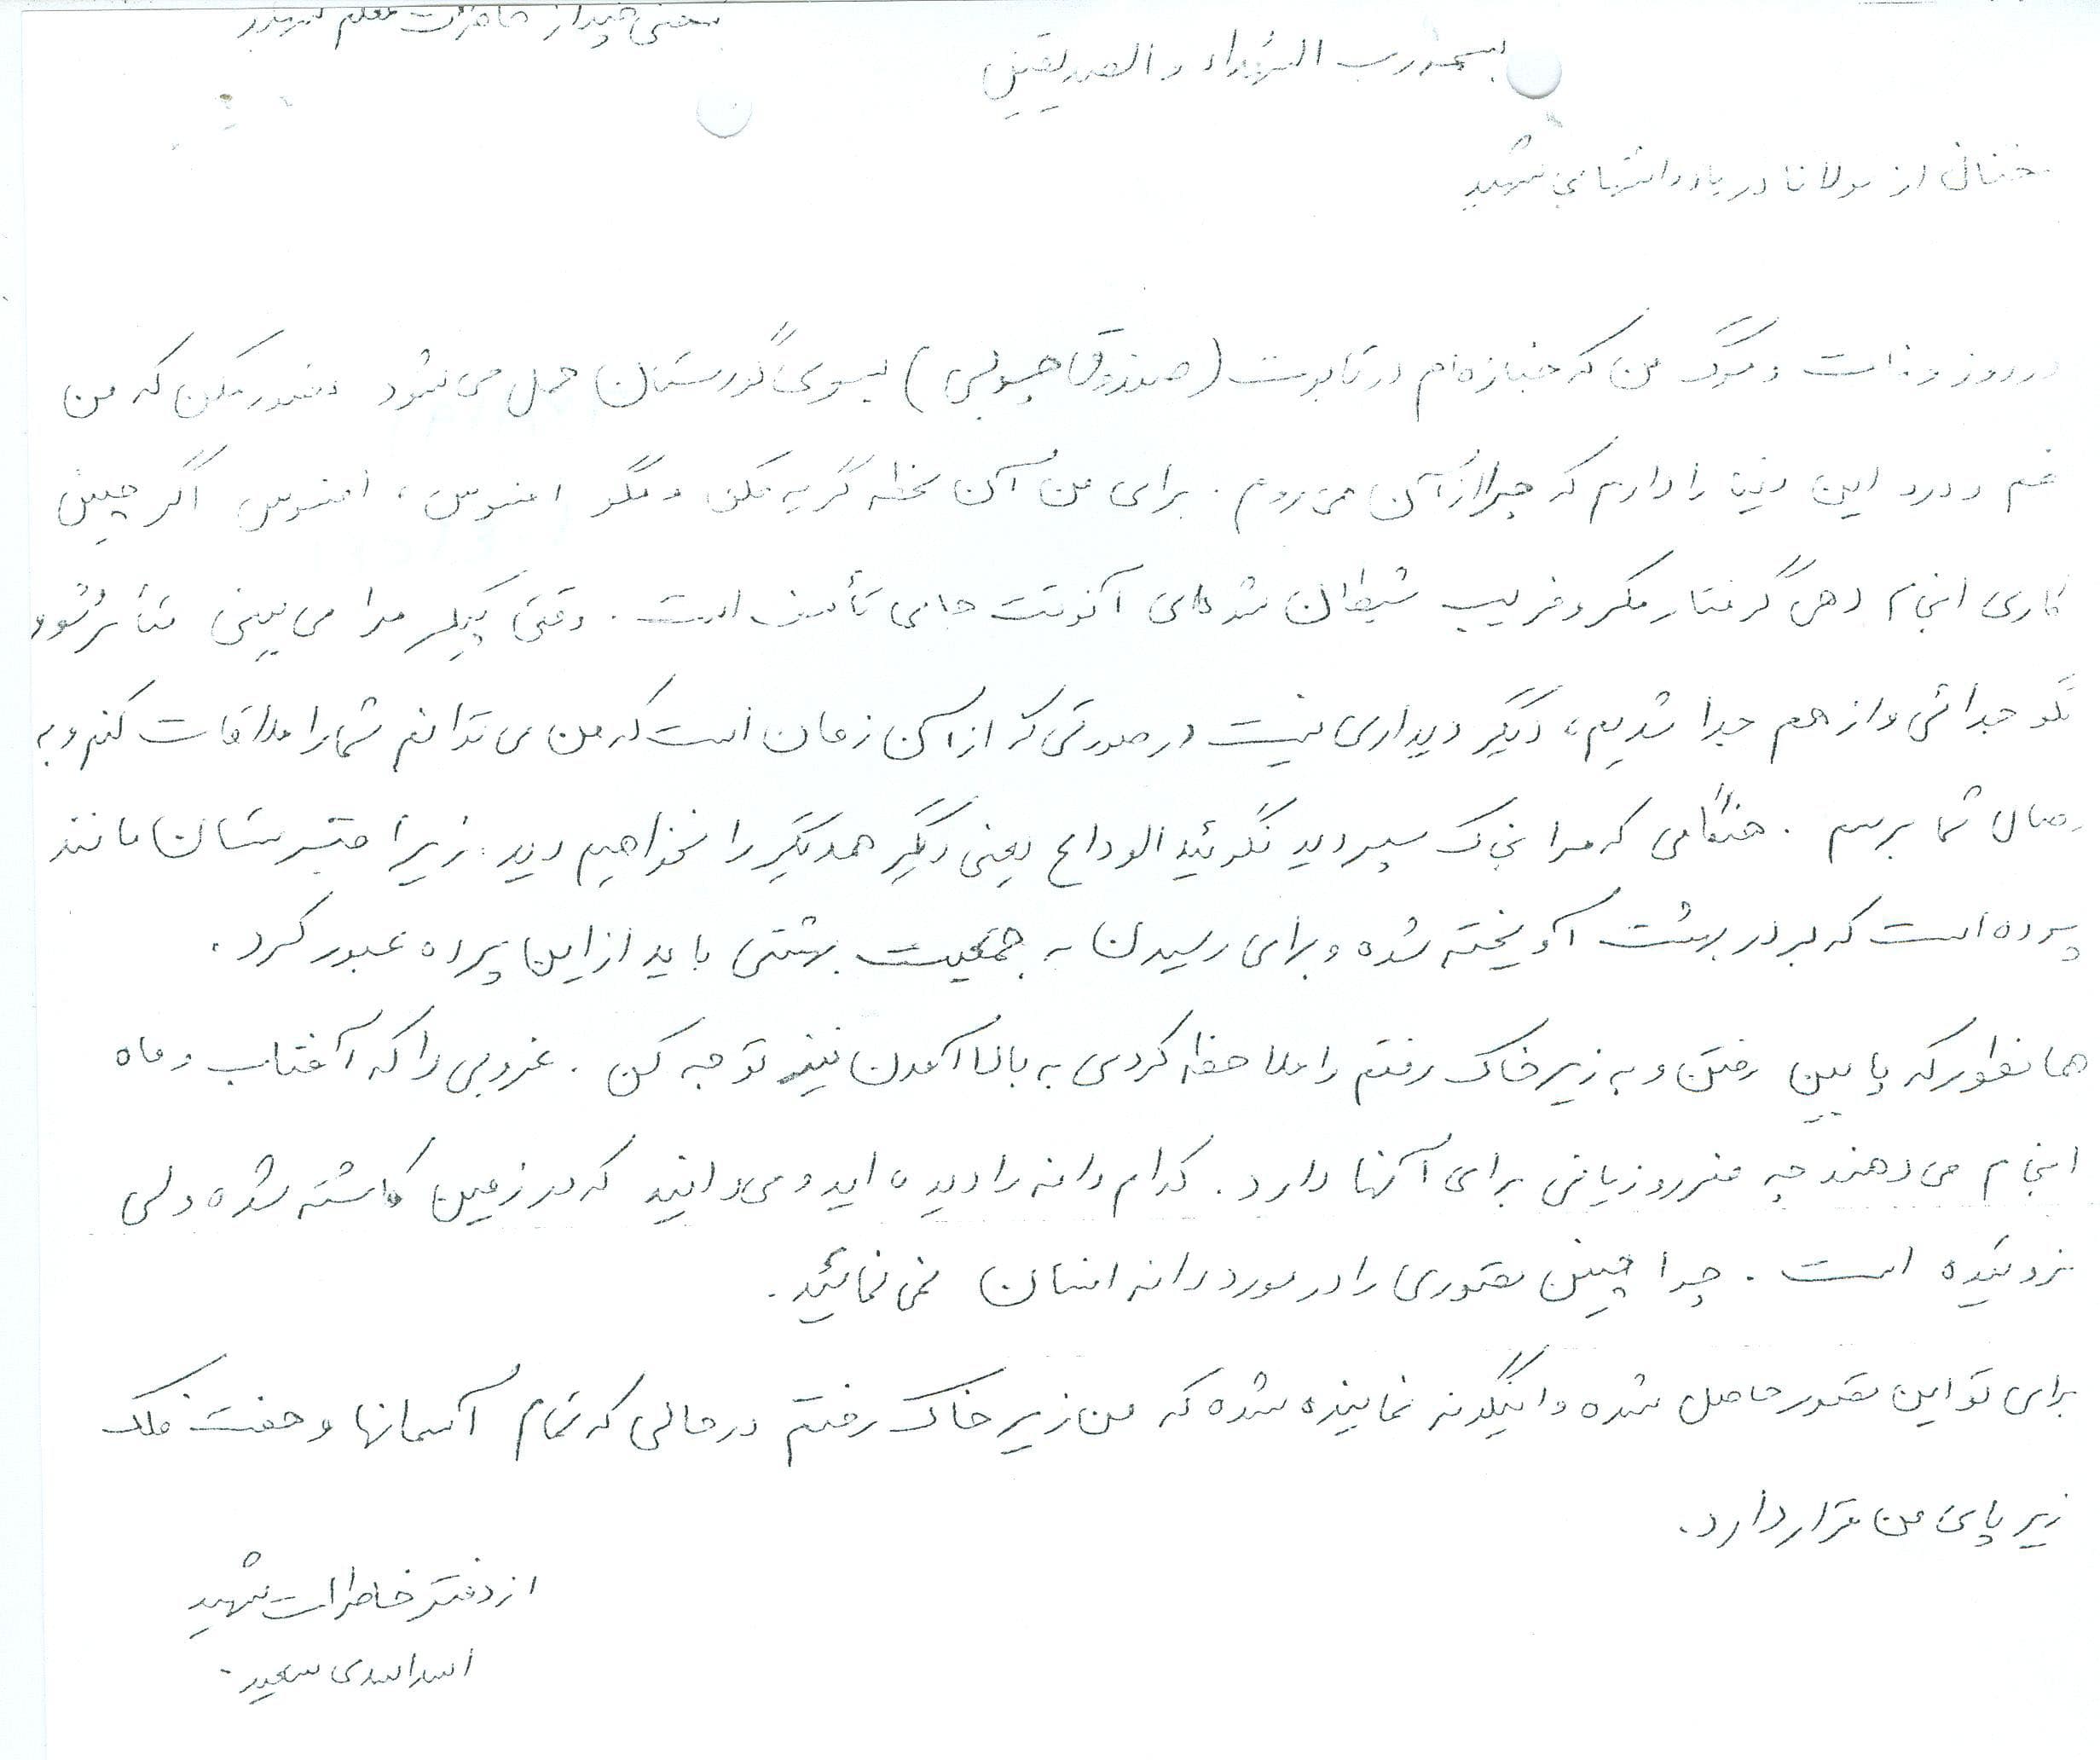 بعضی چند از خاطرات معلم شهید
بسمه رب الشهداء و الصدیقین
سخنانی از مولانا در یادداشتهای شهید
در روز وفات و مرگ من که جنازه‌ام در تابوت (صندوق چوبی) بسوی گورستان حمل می شود تصور مکن که من
غم و درد این دنیا را دارم که چرا از آن می روم. برای من آن لحظه گریه مکن و مگو افسوس، افسوس اگر چنین
کاری انجام دهی گرفتار مکر و فریب شیطان شده‌ای آنوقت جای تأسف است. وقتی پیکر مرا می بینی متأثر نشو و
نگو جدائی و از هم جدا شدیم، دیگر دیداری نیست در صورتی که از آن زمان است که من می توانم شما را ملاقات کنم و به
وصال شما برسم. هنگامی که مرا بخاک سپردید نگوئید الوداع یعنی دیگر همدیگر را نخواهیم دید. زیرا قبرستان مانند
پرده است که بر در بهشت آویخته شده و برای رسیدن به جمعیت بهشتی باید از این پرده عبور کرد.
همانطور که پایین رفتن و به زیر خاک رفتم را ملاحظه کردی به بالا آمدن نیز توجه کن. غروبی را که آفتاب و ماه
انجام می دهند چه ضرر و زیانی برای آنها دارد. کدام دانه را دیده اید و می دانید که در زمین کاشته شده ولی
نروئیده است. چرا چنین تصوری را در مورد دانه انسان نمی نمائید.
برای تو این تصور حاصل شده و اینگونه نماینده شده که من زیر خاک رفتم در حالی که تمام آسمانها و هفت فلک
زیر پای من قرار دارد.
از دفتر خاطرات شهید
اسدی سعید